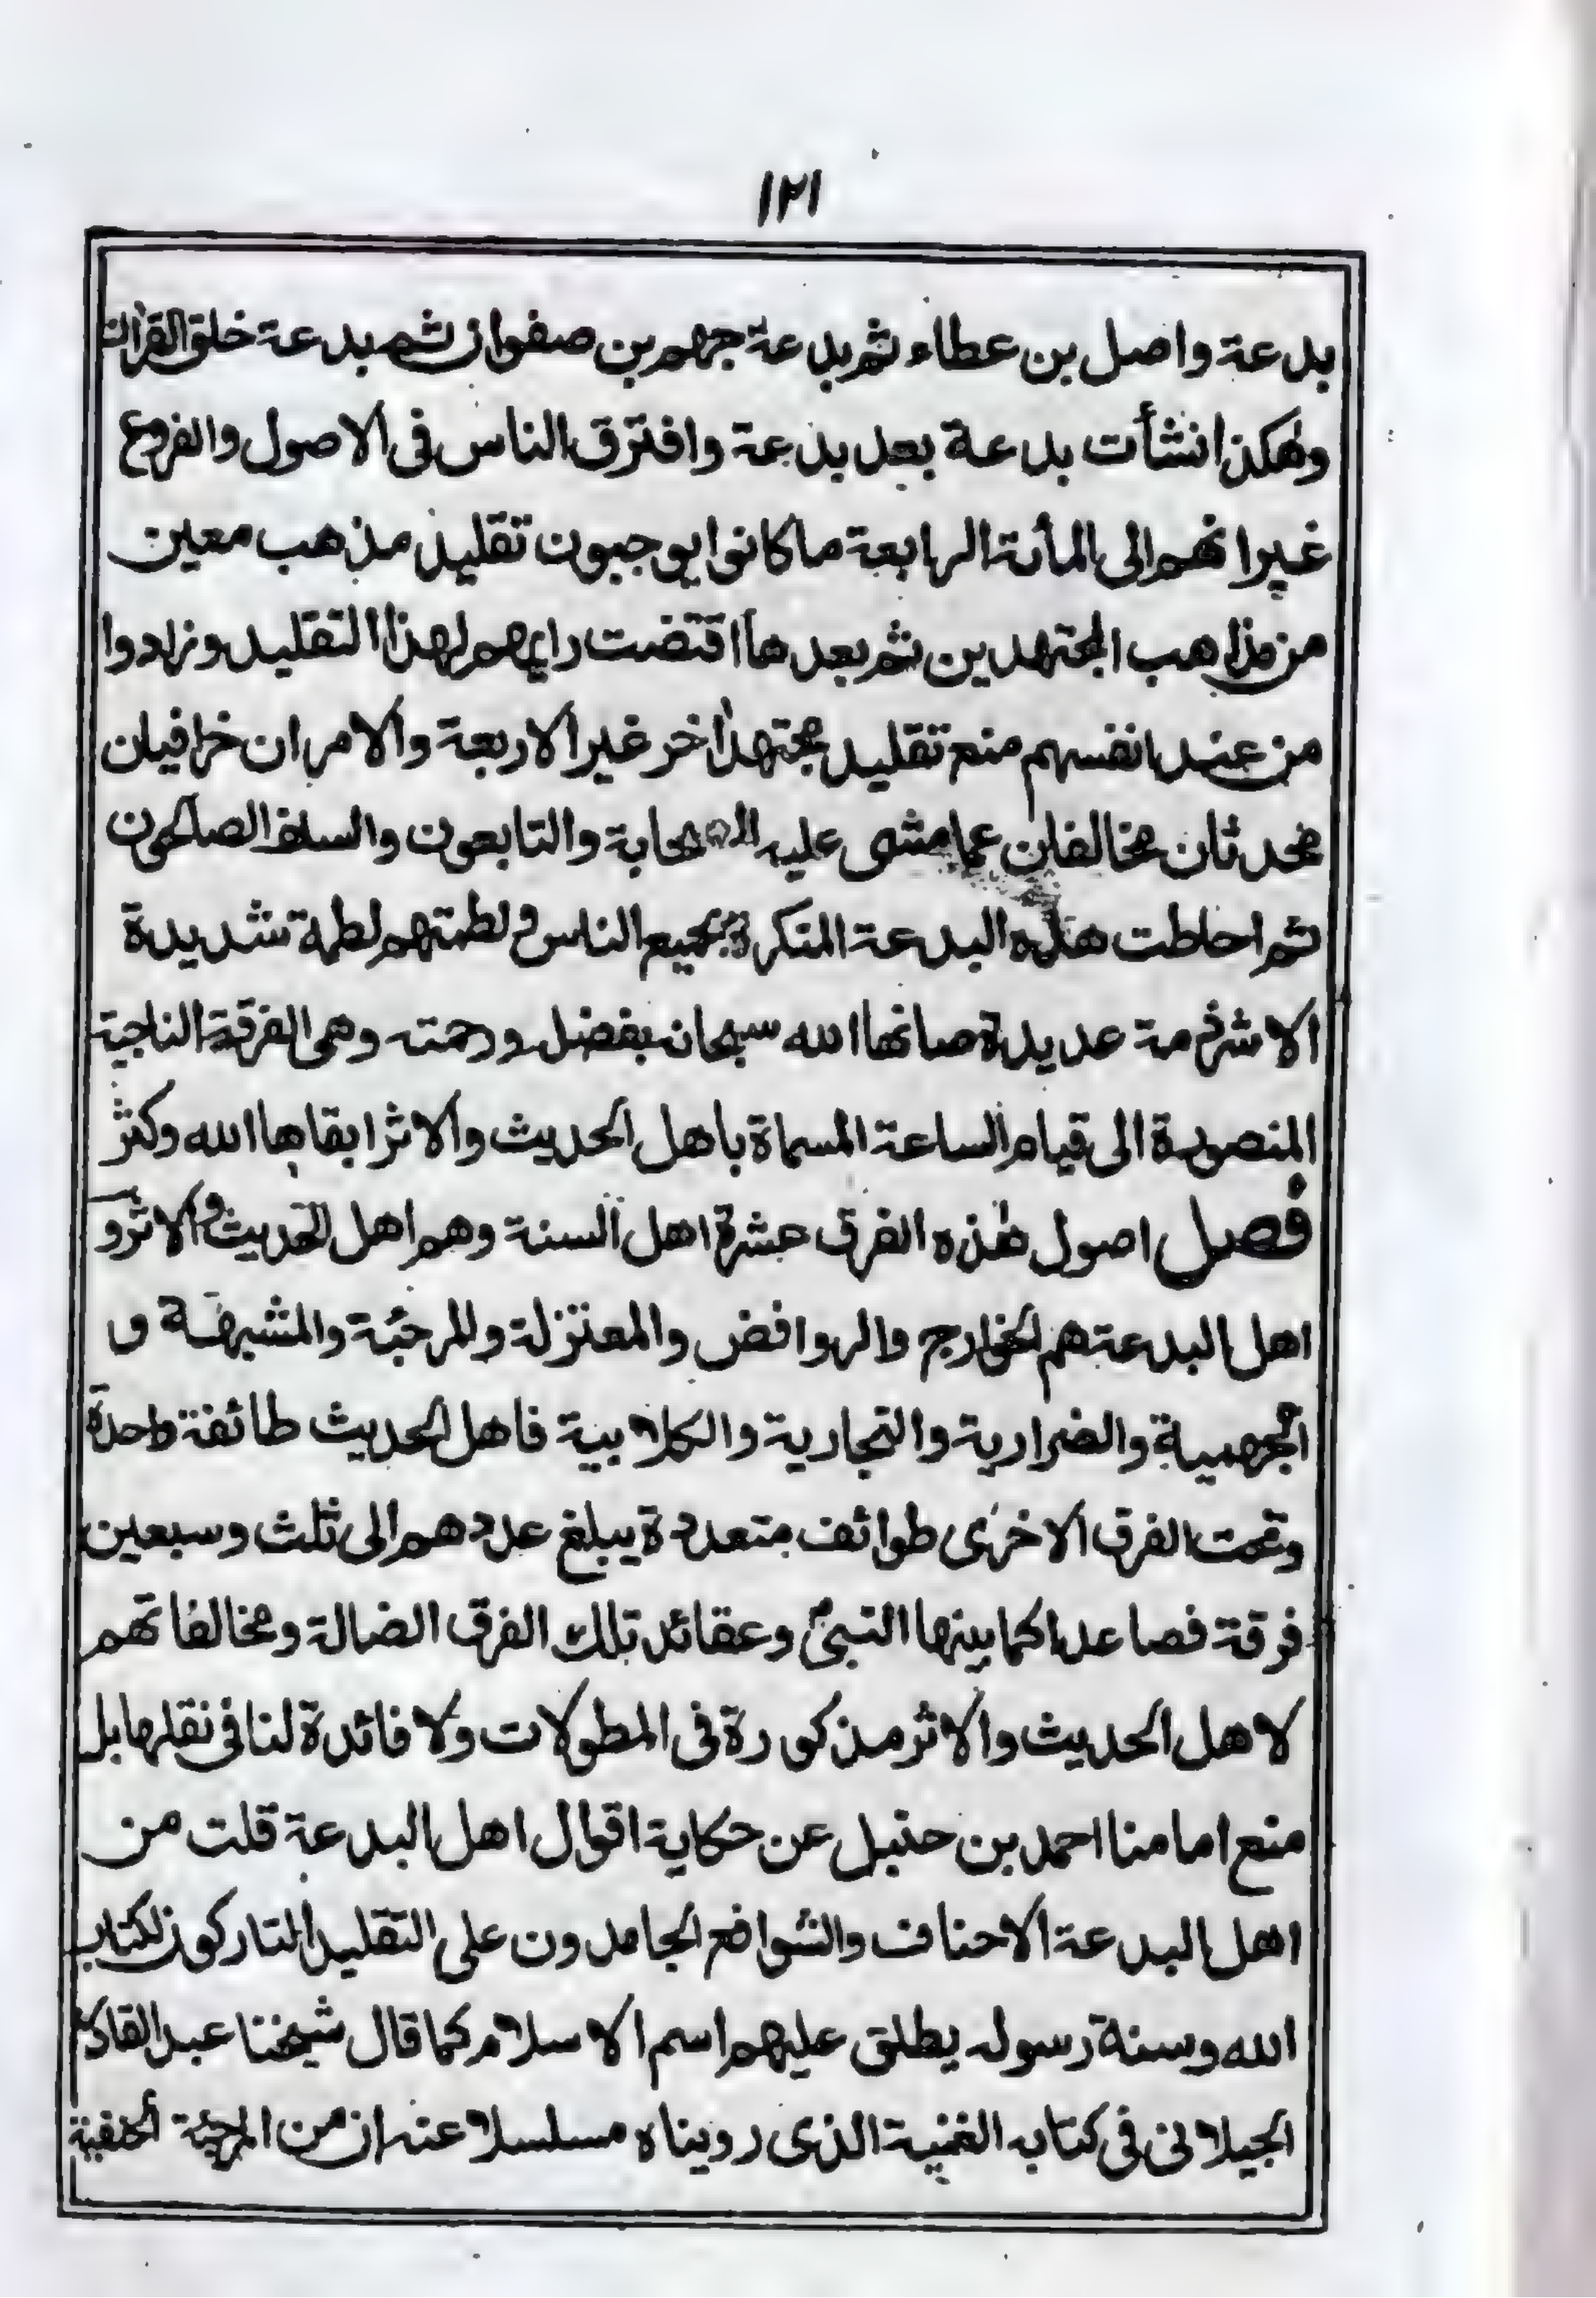 ١٢١
بدعة واصل بن عطاء ثم بدعة جهم بن صفوان ثم بدعة خلق القرآن
وهٰكذا نشأت بدعة بعد بدعة وافترق الناس فى الاصول والفروع
غير انهم الى المأة الرابعة ما كانوا يوجبون تقليد مذهب معين
من مذاهب المجتهدين ثم بعدها اقتضت رايهم لهذا التقليد وزادوا
من عند انفسهم منع تقليد مجتهد اٰخر غير الاربعة والامران خرافيان
محدثان مخالفان عما مشى عليه الصحابة والتابعون والسلف الصالحون
ثم احاطت هذه البدعة المنكرة بجميع الناس ولطمتهم لطمة شديدة
الا شرذمة عديدة صانها الله سبحانه بفضله ورحمته وهى الفرقة الناجية
المنصورة الى قيام الساعة المسماة باهل الحديث والاثر ابقاها الله وكثر
فصل اصول هٰذه الفرق عشرة اهل السنة وهم اهل الحديث والاثر و
اهل البدعة هم الخوارج والروافض والمعتزلة والمرجئة والمشبهة و
الجهمية والضرارية والنجارية والكلابية فاهل الحديث طائفة واحدة
وتحت الفرق الاخرٰى طوائف متعددة يبلغ عددهم الى ثلث وسبعين
فرقة فصاعدا كما بينها النبىؐ وعقائد تلك الفرق الضالة ومخالفاتهم
لاهل الحديث والاثر مذكورة فى المطولات ولا فائدة لنا فى نقلها بل
منع امامنا احمد بن حنبل عن حكاية اقوال اهل البدعة قلت من
اهل البدعة الاحناف والشوافع الجامدون على التقليد التاركون لكتاب
الله وسنة رسوله يطلق عليهم اسم الاسلام كما قال شيخنا عبد القادر
الجيلانى فى كتابه الغنية الذى رويناه مسلسلا عنه ان من المرجئة الحنفية